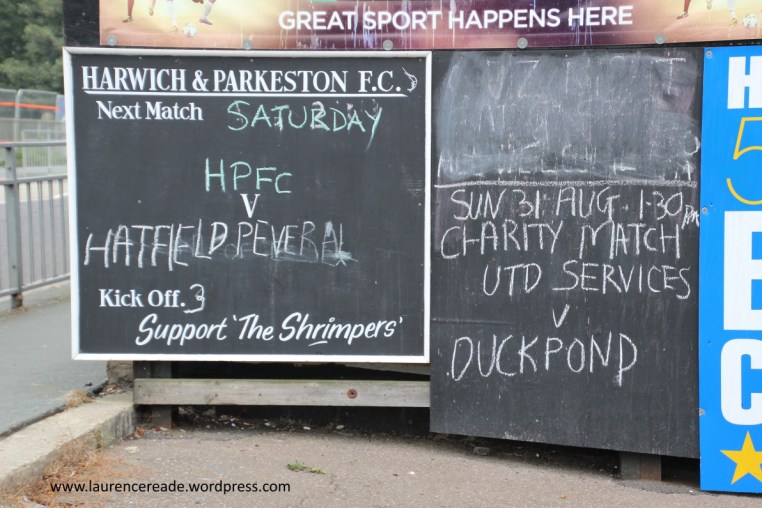 GREAT SPORT HAPPENS HERE
HARWICH & PARKESTON F.C.
Next Match SATURDAY
HPFC
V
HATFIELD PEVERAL
Kick Off. 3
Support 'The Shrimpers'
SUN 31 AUG. 1.30PM
CHARITY MATCH
UTD SERVICES
V
DUCKPOND
www.laurencereade.wordpress.com